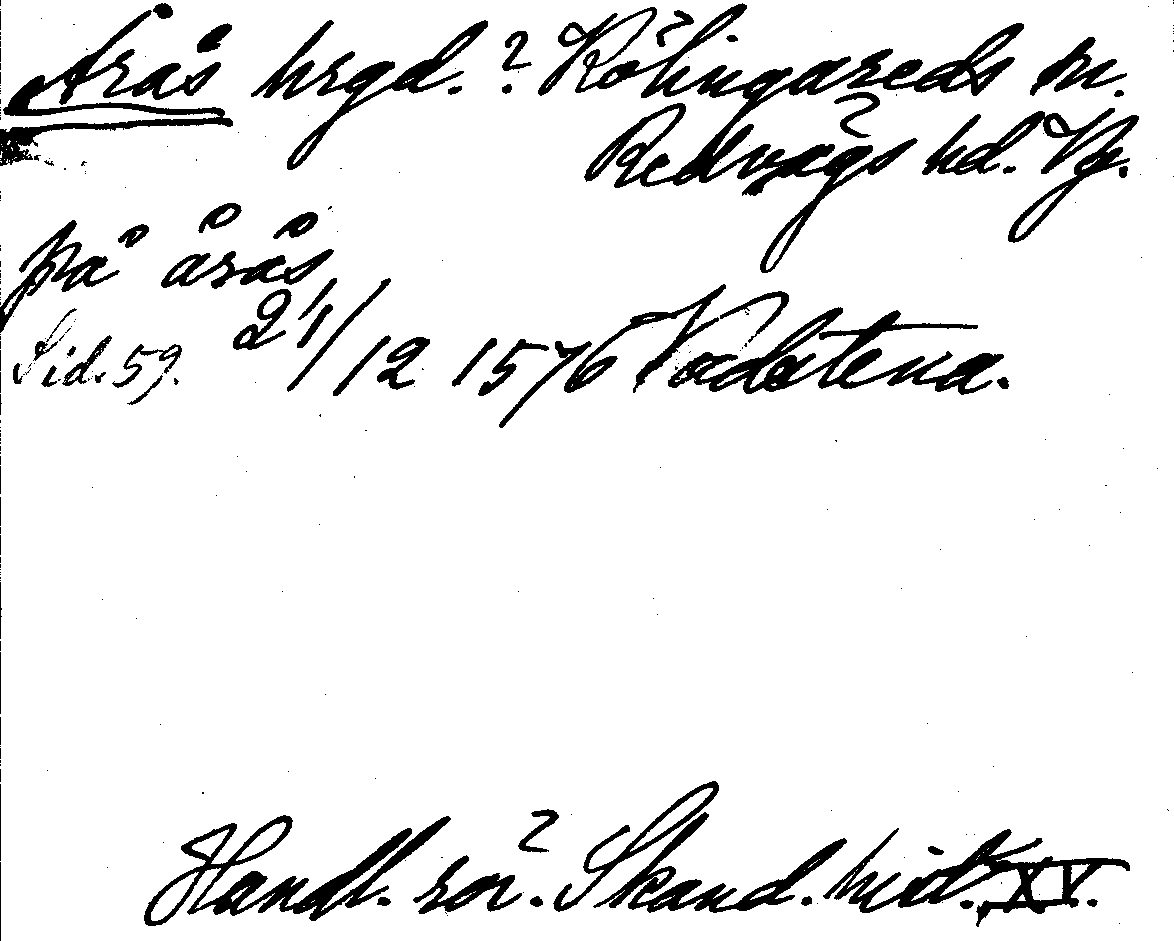 Årås hrgd. ? Kölingareds sn.
Redvägs hd. Vg.
på årås
Sid. 59. 21/12 1576 Vadstena.
Handl. rör. Skand. hist. XV.